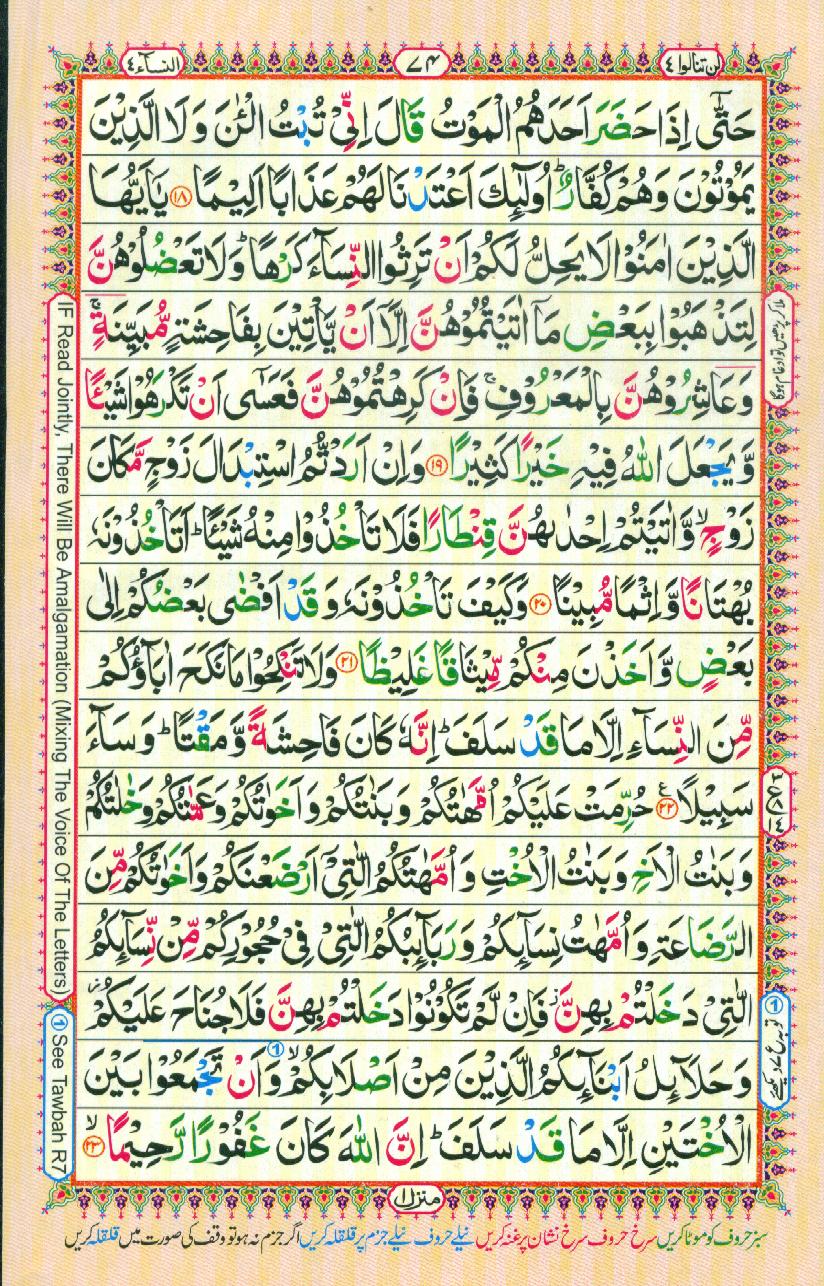 لن تنالوا ٤
٧٤
النسآء ٤
حَتّٰۤى اِذَا حَضَرَ اَحَدَهُمُ الْمَوْتُ قَالَ اِنِّىْ تُبْتُ الْـٰٔنَ وَ لَا الَّذِيْنَ
يَمُوْتُوْنَ وَهُمْ كُفَّارٌؕ اُولٰٓئِكَ اَعْتَدْنَا لَهُمْ عَذَابًا اَلِيْمًا ۝۱۸ يٰۤاَيُّهَا
الَّذِيْنَ اٰمَنُوْا لَا يَحِلُّ لَكُمْ اَنْ تَرِثُوا النِّسَآءَ كَرْهًاؕ وَلَا تَعْضُلُوْهُنَّ
لِتَذْهَبُوْا بِبَعْضِ مَاۤ اٰتَيْتُمُوْهُنَّ اِلَّاۤ اَنْ يَّاْتِيْنَ بِفَاحِشَةٍ مُّبَيِّنَةٍۚ
وَعَاشِرُوْهُنَّ بِالْمَعْرُوْفِۚ فَاِنْ كَرِهْتُمُوْهُنَّ فَعَسٰۤى اَنْ تَكْرَهُوْا شَيْـًٔا
وَّ يَجْعَلَ اللّٰهُ فِيْهِ خَيْرًا كَثِيْرًا ۝۱۹ وَاِنْ اَرَدْتُّمُ اسْتِبْدَالَ زَوْجٍ مَّكَانَ
زَوْجٍۙ وَّاٰتَيْتُمْ اِحْدٰىهُنَّ قِنْطَارًا فَلَا تَاْخُذُوْا مِنْهُ شَيْـًٔاؕ اَتَاْخُذُوْنَهٗ
بُهْتَانًا وَّ اِثْمًا مُّبِيْنًا ۝۲۰ وَكَيْفَ تَاْخُذُوْنَهٗ وَ قَدْ اَفْضٰى بَعْضُكُمْ اِلٰى
بَعْضٍ وَّ اَخَذْنَ مِنْكُمْ مِّيْثَاقًا غَلِيْظًا ۝۲۱ وَلَا تَنْكِحُوْا مَا نَكَحَ اٰبَآؤُكُمْ
مِّنَ النِّسَآءِ اِلَّا مَا قَدْ سَلَفَؕ اِنَّهٗ كَانَ فَاحِشَةً وَّ مَقْتًاؕ وَ سَآءَ
سَبِيْلًا ۝۲۲ع حُرِّمَتْ عَلَيْكُمْ اُمَّهٰتُكُمْ وَ بَنٰتُكُمْ وَ اَخَوٰتُكُمْ وَ عَمّٰتُكُمْ وَ خٰلٰتُكُمْ
وَ بَنٰتُ الْاَخِ وَ بَنٰتُ الْاُخْتِ وَ اُمَّهٰتُكُمُ الّٰتِىْۤ اَرْضَعْنَكُمْ وَ اَخَوٰتُكُمْ مِّنَ
الرَّضَاعَةِ وَ اُمَّهٰتُ نِسَآئِكُمْ وَ رَبَآئِبُكُمُ الّٰتِىْ فِىْ حُجُوْرِكُمْ مِّنْ نِّسَآئِكُمُ
الّٰتِىْ دَخَلْتُمْ بِهِنَّؗ فَاِنْ لَّمْ تَكُوْنُوْا دَخَلْتُمْ بِهِنَّ فَلَا جُنَاحَ عَلَيْكُمْؗ
وَ حَلَآئِلُ اَبْنَآئِكُمُ الَّذِيْنَ مِنْ اَصْلَابِكُمْۙ① وَ اَنْ تَجْمَعُوْا بَيْنَ
الْاُخْتَيْنِ اِلَّا مَا قَدْ سَلَفَؕ اِنَّ اللّٰهَ كَانَ غَفُوْرًا رَّحِيْمًاۙ ۝۲۳
منزل ۱
سبز حروف کو موٹا کریں سرخ حروف سرخ نشان پر غنہ کریں نیلے حروف نیلے جزم پر قلقلہ کریں اگر جزم نہ ہو تو وقف کی صورت میں قلقلہ کریں
IF Read Jointly, There Will Be Amalgamation (Mixing The Voice Of The Letters)
① See Tawbah R7